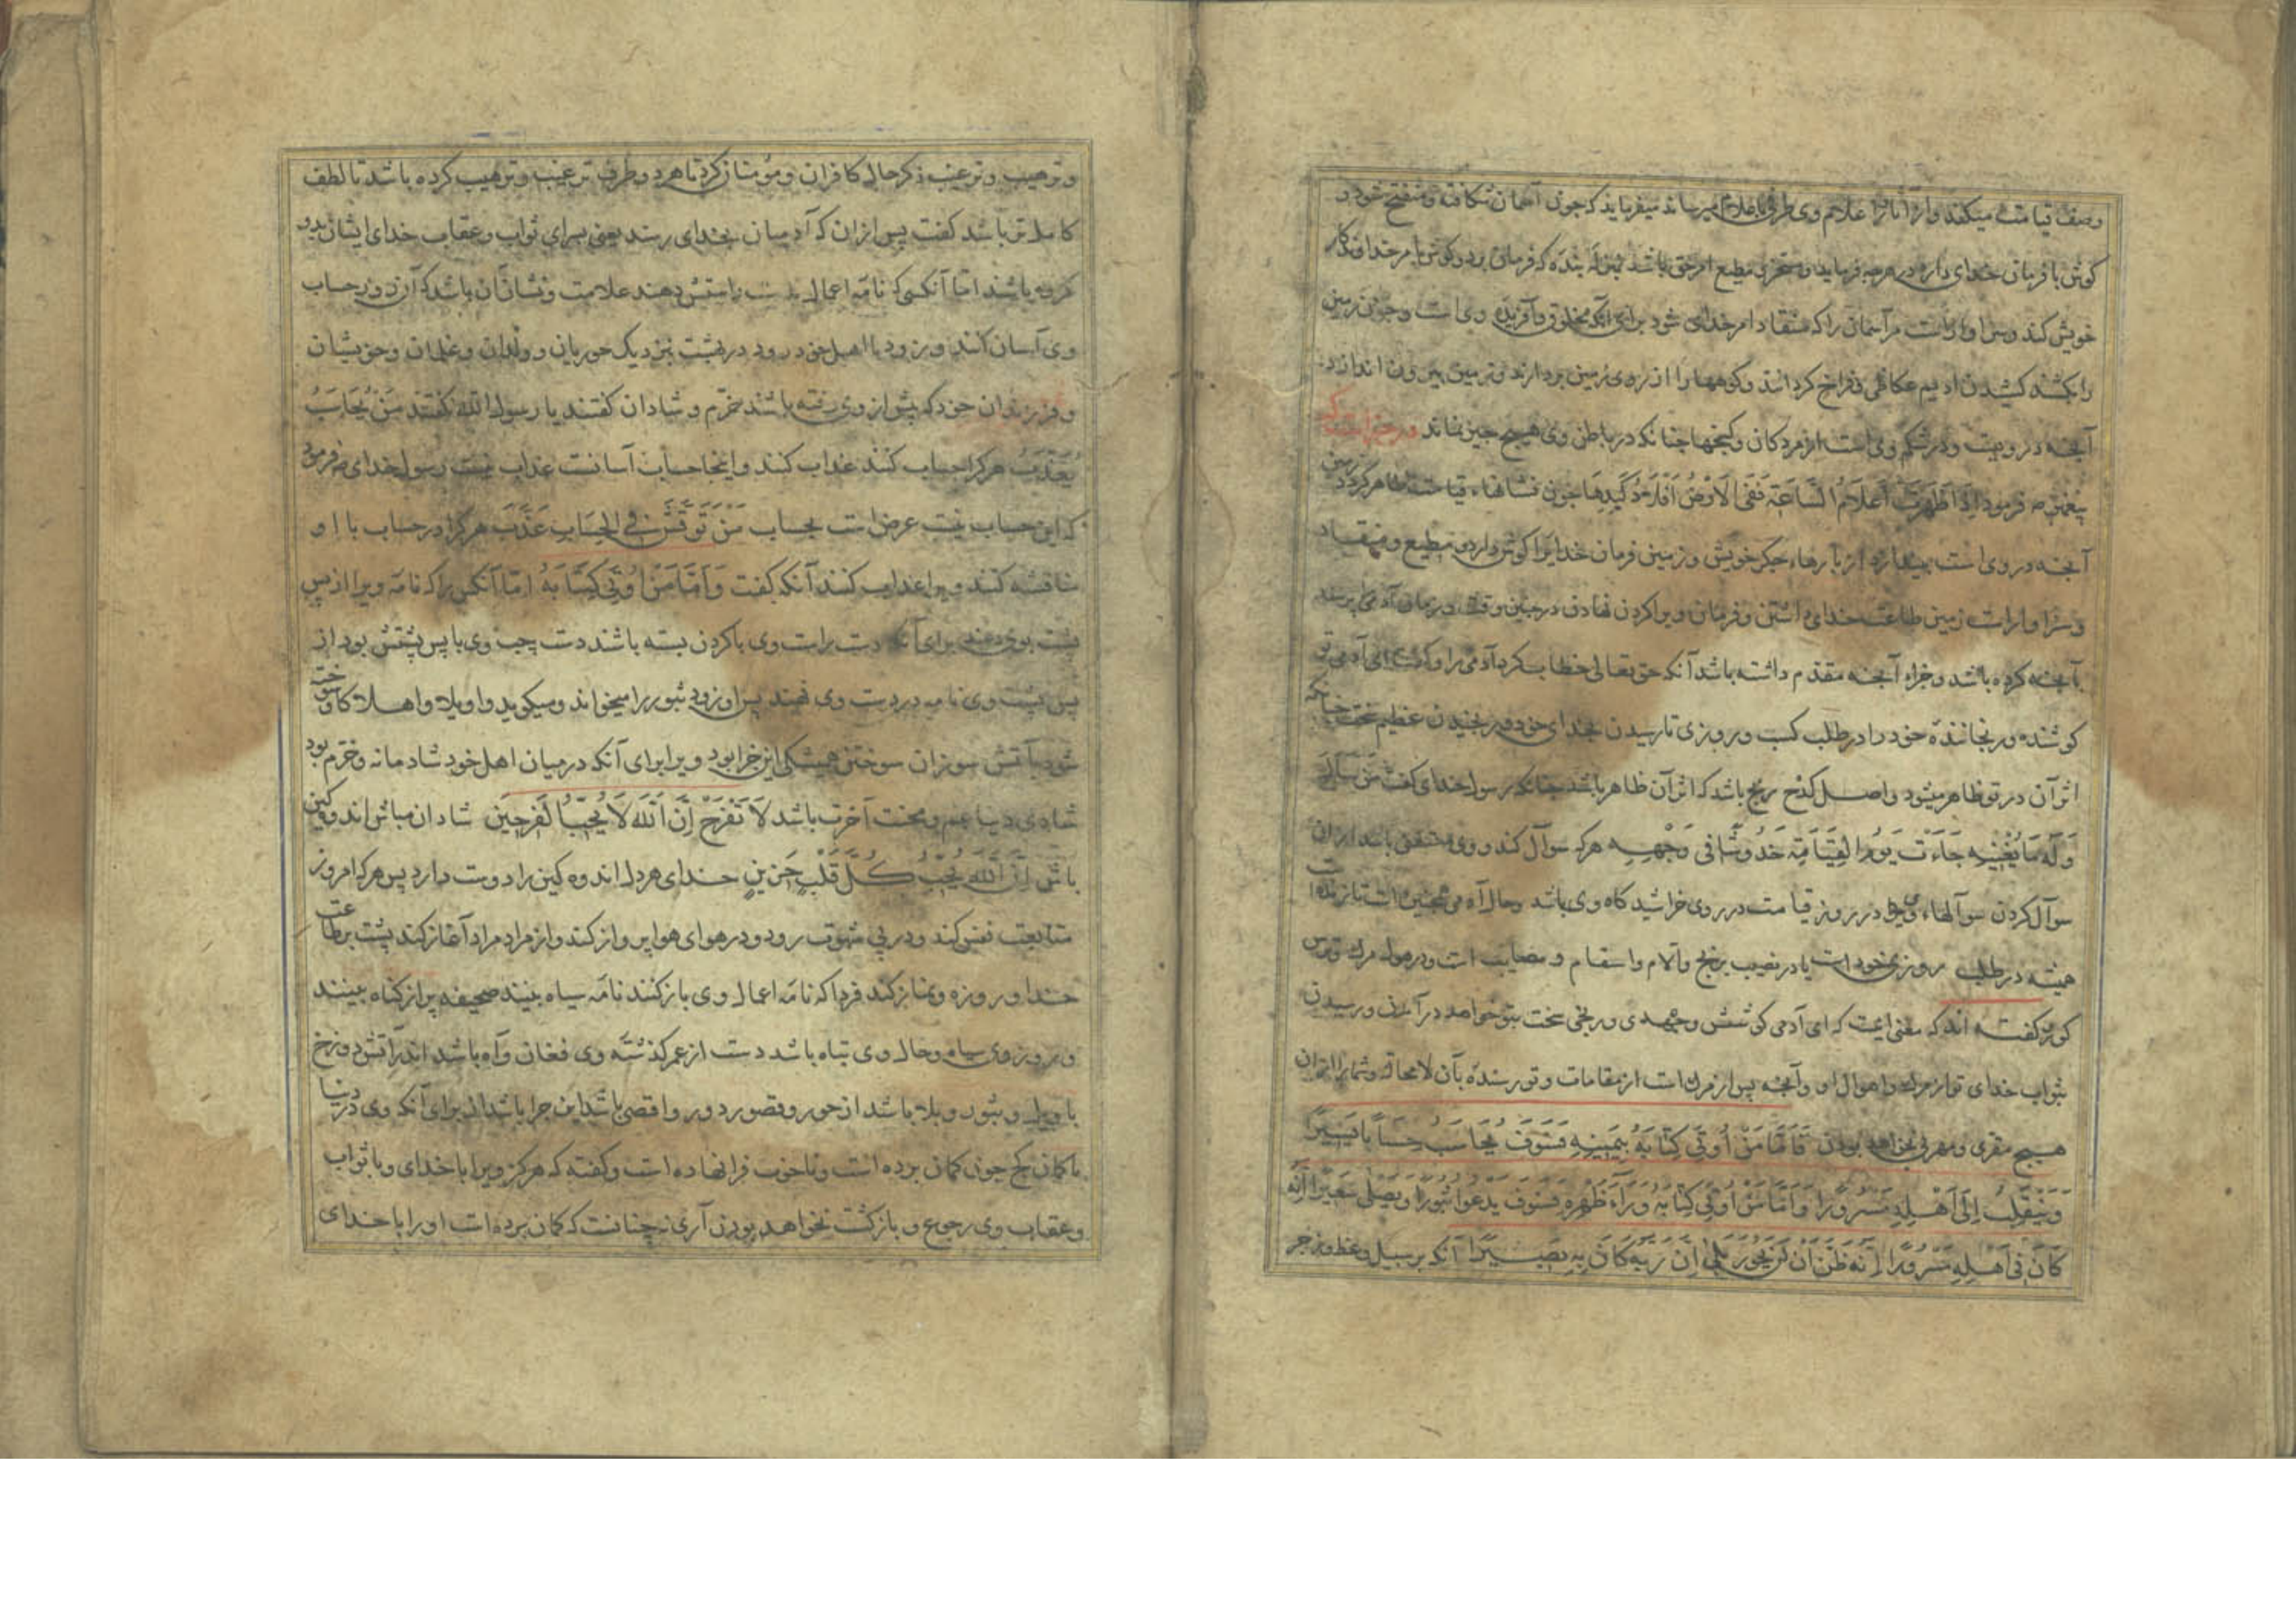 وصف قیامت میکند و از آثار و علایم وی طرفی باعلام میرساند میفرماید که جون آسمان شکافته و منفتح شود و
کوش با فرمان خدای دارد در هرجه فرماید و مسخر و مطیع امر حق باشد بمنزله بنده که فرمان برد و کوش با امر خداوندکار
خویش کند و سزاوار است مر آسمان را که منقاد امر خدای شود برای آنکه مخلوق و آفریده وی است و جون زمین
را بکشند کشیدن ادیم عکاظی و فراخ کردانند و کوهها را از روی زمین بردارند و زمین بیرون اندازد
آنجه در ویست و در شکم وی است از مردکان و کنجها جنانکه در باطن وی هیج جیز نماند و در خبر است که
بیغمبر ص فرمود اِذَا ظَهَرَتْ اَعْلَامُ السَّاعَةِ جون نشانهاء قیامت ظاهر کردد زمین
آنجه در وی است بیندازد از بارهاء جکر خویش و زمین فرمان خدایرا کوش دارد و مطیع و منقاد
و سزاوار است زمین طاعت خدای داشتن و فرمان ویرا کردن نهادن در جنین وقت و زمان آدمی برسد
بآنجه کرده باشد و جزاء آنجه مقدم داشته باشد آنکه حق تعالی خطاب کرد آدمی را و کفت ای آدمی تو
کوشنده و رنجاننده خود را در طلب کسب و روزی تا رسیدن بخدای خود و رنجیدن عظیم سخت جنانکه
اثر آن در تو ظاهر میشود و اصل کدح رنج باشد که اثر آن ظاهر باشد جنانکه رسول خدای کفت مَنْ سَأَلَ
وَلَهُ مَا یُغْنِیهِ جَاءَتْ یَوْمَ الْقِیَامَةِ خُدُوشًا فِی وَجْهِهِ هرکه سوآل کند و وی مستغنی باشد از آن
سوآل کردن سوآلهاء وی در روز قیامت در روی خراشیدکاه وی باشد و حال آدمی همجنین است تا زنده است
همیشه در طلب روزی خود است یا در نصیب رنج و آلام و اسقام و مصایب است و در هول مرک و ترس
کور و کفته اند که معنی اینست که ای آدمی کوشش و جهدی و رنجی سخت بتو خواهد در آمدن و رسیدن
بثواب خدای تو از مرک و اهوال او و آنجه پس از مرک است از مقامات و تو رسنده بآن لامحاله و شما را از آن
هیج مقری و مهربی نخواهد بودن فَاَمَّا مَنْ اُوتِیَ کِتَابَهُ بِیَمِینِهِ فَسَوْفَ یُحَاسَبُ حِسَاباً یَسِیرًا
وَیَنْقَلِبُ اِلَی اَهْلِهِ مَسْرُورًا وَاَمَّا مَنْ اُوتِیَ کِتَابَهُ وَرَاءَ ظَهْرِهِ فَسَوْفَ یَدْعُوا ثُبُورًا وَیَصْلَی سَعِیرًا اِنَّهُ
کَانَ فِی اَهْلِهِ مَسْرُورًا اِنَّهُ ظَنَّ اَنْ لَنْ یَحُورَ بَلَی اِنَّ رَبَّهُ کَانَ بِهِ بَصِیرًا آنکه بر سبیل وعظ و زجر
و ترهیب و ترغیب ذکر حال کافران و مؤمنان کرد تا هر دو طرف ترغیب و ترهیب کرده باشد تا لطف
کاملتر باشد کفت پس از آن که آدمیان بخدای رسند یعنی بسرای ثواب و عقاب خدای ایشان بدو
کروه باشند اما آنکسی که نامه اعمال بدست راستش دهند علامت و نشان آن باشد که آن زود حساب
وی آسان کنند و زود با اهل خود رود در بهشت بنزدیک حوریان و ولدان و غلمان و خویشان
و فرزندان خود که پیش از وی رفته باشند خرّم و شادان کفتند یا رسول الله کفتند مَنْ یُحَاسَبْ
یُعَذَّبْ هرکرا حساب کنند عذاب کنند و اینجا حساب آسانست عذاب نیست رسول خدای ص فرمود
که این حساب نیست عرض است بحساب مَنْ نُوقِشَ فِی الْحِسَابِ عُذِّبَ هرکرا در حساب با او
مناقشه کنند ویرا عذاب کنند آنکه کفت وَاَمَّا مَنْ اُوتِیَ کِتَابَهُ امّا آنکس را که نامه ویرا از پس
پشت بوی دهند برای آنکه دست راست وی با کردن بسته باشند دست چپ وی با پس پشتش بود از
پس پشت وی نامه در دست وی نهند پس او زود ثبور را میخواند و میکوید واویلا و اهلاکا و سوخته
شود بآتش سوزان سوختن همیشکی این جزا بود ویرا برای آنکه در میان اهل خود شادمانه و خرّم بود
شادی دنیا غم و محنت آخرت باشد لَا تَفْرَحْ اِنَّ اللّٰهَ لَا یُحِبُّ الْفَرِحِینَ شادان مباش اندوهکین
باش اِنَّ اللّٰهَ یُحِبُّ کُلَّ قَلْبٍ حَزِینٍ خدای هر دل اندوهکین را دوست دارد پس هرکه امروز
متابعت نفس کند و در پی شهوت رود و در هوای هوا پرواز کند و از مراد مراد آغاز کند پشت بر طاعت
خدا و روزه و نماز کند فردا که نامه اعمال وی باز کنند نامه سیاه بینند صحیفه پر از کناه بینند
و روز وی سیاه و حال وی تباه باشد دست از عمر کذشته وی فغان و آه باشد اندر آتش دوزخ
با ویل و ثبور و بلا باشد از حور و قصور دور و اقصی باشد این جزا باشد الا برای آنکه وی در دنیا
با کمان کج جون کمان برده است و ناخوب فرا نهاده است و کفته که هرکز ویرا با خدای و با ثواب
و عقاب وی رجوع و بازکشت نخواهد بودن آری نه چنانست که کمان برده است او را با خدای